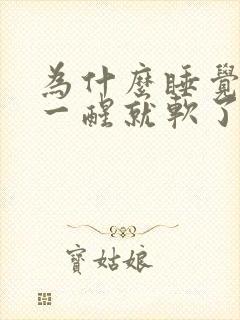 為什麼睡覺
一醒就軟了
寶姑娘